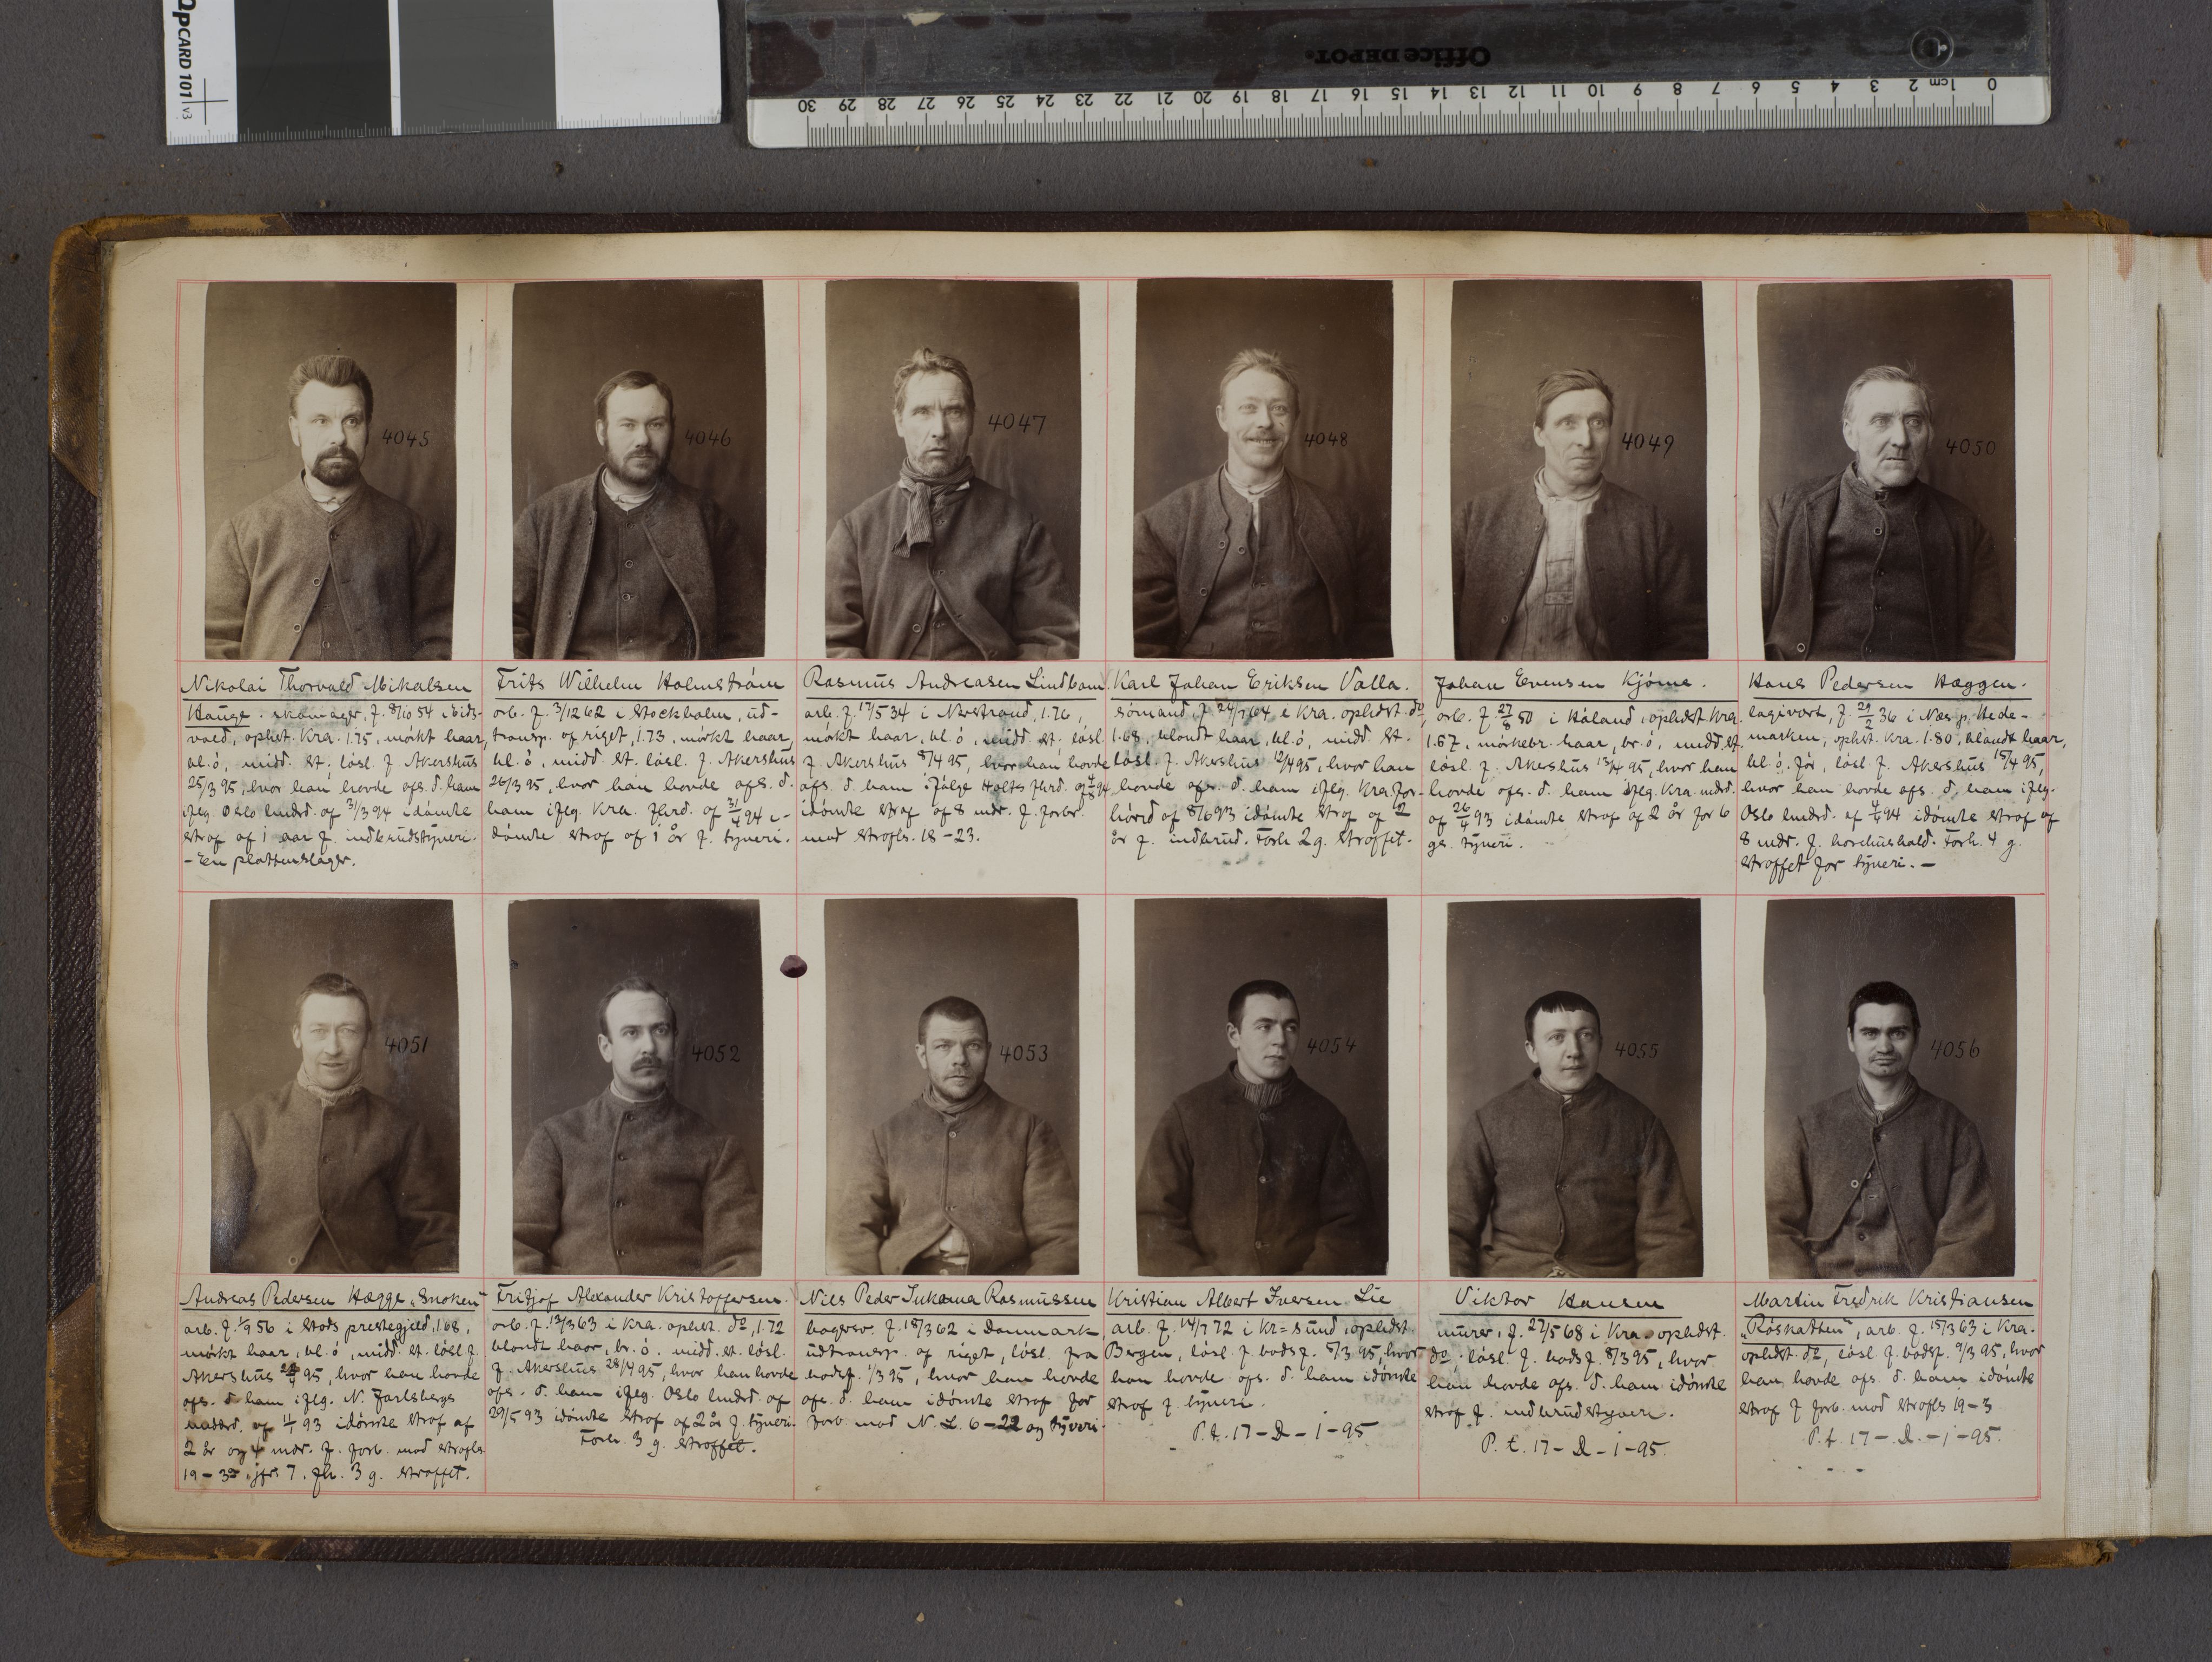 QPCARD 101 v3
Office DEPOT
0 1cm 2 3 4 5 6 7 8 9 10 11 12 13 14 15 16 17 18 19 20 21 22 23 24 25 26 27 28 29 30
4045
4046
4047
4048
4049
4050
Nikolai Thorvald Mikalsen
Hauge. skomager, f. 8/10 54 i Eids-
vold, ophst. Kra. 1.75, mørkt haar,
bl. ö, midd. st. løsl. f. Akershus
25/3 95, hvor han havde afs. d. ham
iflg. Oslo mdrd. af 31/3 94 idømte
straf af 1 aar f. indbrudstyveri.
- En plattenslager.
Frits Wilhelm Holmström
arb. f. 3/12 62 i Stockholm, ud-
transp. af riget, 1.73, mørkt haar,
bl. ö, midd. st. løsl. f. Akershus
26/3 95, hvor han havde afs. d.
ham iflg. Kra. flrd. af 31/4 94 i-
dømte straf af 1 år f. tyveri.
Rasmus Andreasen Lindbom
arb. f. 17/5 34 i Nøstrand, 1.76,
mørkt haar, bl. ö, midd. st, løsl.
f. Akershus 8/4 95, hvor han havde
afs. d. ham ifølge Holts flrd. af 4/9 94
idømte straf af 8 mdr. f. forbr.
mod strafls. 18-23.
Karl Johan Eriksen Valla.
sømand, f. 24/7 64 i Kra. ophdst. do,
1.68, blondt haar, bl. ö, midd st.
løsl. f. Akershus 12/4 95, hvor han
havde afs. d. ham iflg. Kra. for-
hörsd af 8/6 93 idømte straf af 2
år f. indbrud. Forh 2 g. straffet.
Johan Evensen Kjøme.
arb. f. 27/8 50 i Høland, ophdst. Kra.
1.67, mørkebr. haar, br. ö, midd. st.
løsl. f. Akershus 13/4 95, hvor han
havde afs. d. ham iflg. Kra. mdrd.
af 26/4 93 idømte straf af 2 år for 6
gs. tyveri.
Hans Pedersen Hæggen.
logivært, f. 29/2 36 i Næs p. Hede-
marken, ophst. Kra. 1.80, blandt haar,
bl. ö. før, løsl. f. Akershus 15/4 95,
hvor han havde afs. d. ham iflg.
Oslo mdrd. af 4/9 94 idømte straf af
8 mdr. f. horehushold. Forh. 4 g.
straffet for tyveri. -
4051
4052
4053
4054
4055
4056
Andreas Pedersen Hægge "Snoken"
arb. f. 1/9 56 i Stods prestegjeld, 1.68,
mørkt haar, bl. ö, midd. st. løsl f.
Akershus 95, hvor han havde
afs. d. ham iflg. N. Jarlsbergs
af 1/4 93 idømte straf af
2 år og 4 mdr. f. forb. mod strafls
19-3, jfr. 7. fh. 3 g. straffet.
Fritjof Alexander Kristoffersen.
arb. f. 13/3 63 i Kra. ophst. do, 1.72
blondt haar, br. ö. midd. st. løsl.
f. Akershus 28/4 95, hvor han havde
afs. d. ham iflg. Oslo mdrd. af
29/5 93 idømte straf af 2 år f. tyveri.
Forh. 3 g. straffet.
Nils Peder Rasmussen
bagersv. f. 18/3 62 i Danmark,
udtransp. af riget, løsl. fra
bodsf. 1/3 95, hvor han havde
afs. d. ham idømte straf for
forb. mod N. L. 6-22 og tyveri.
Kristian Albert Iversen Lie
arb. f. 14/7 72 i Kr=sund, ophdst.
Bergen, løsl. f bodsf. 8/3 95, hvor
han havde afs. d. ham idømte
straf f. tyveri.
P. t. 17-D-1-95
Viktor Hansen
murer, f. 27/5 68 i Kra. ophdst.
do. løsl. f. bodsf. 8/3 95, hvor
han havde afs. d. ham idømte
straf f. indbrudstyveri.
P. t. 17-D-1-95.
Martin Fredrik Kristiansen
"Røskatten", arb. f. 15/3 63 i Kra.
ophdst. do, løsl. f. bodsf. 9/3 95, hvor
han havde afs. d. ham idømte
straf f forb. mod strafls 19-3
P. t. 17-D.-1-95.